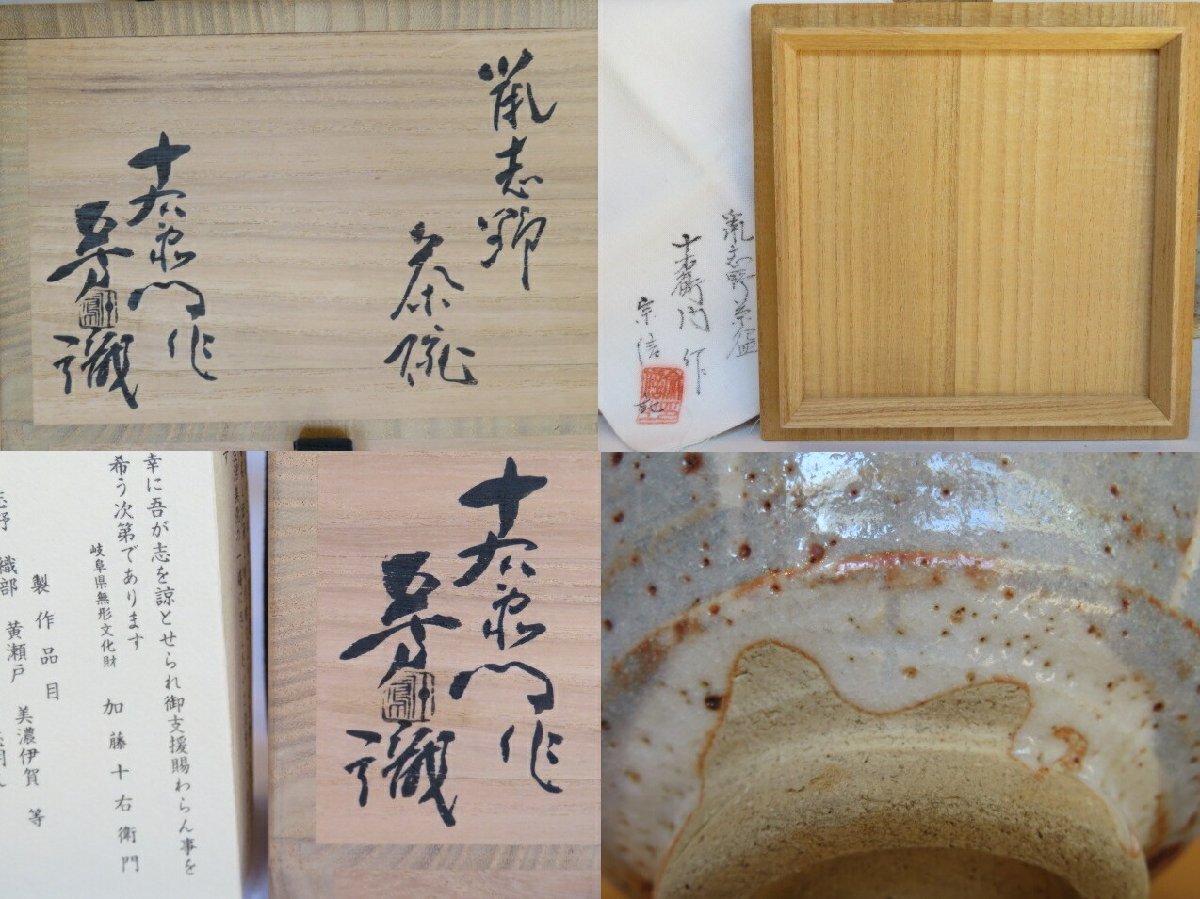 鼡志野
茶碗
十右衛門作
芳
識
鼡志野茶盌
十右衛門作
宗信
記
幸に吾が志を諒とせられ御支援賜わらん事を
希う次第であります
岐阜県無形文化財
加藤十右衛門
製作品目
志野 織部 黄瀬戸 美濃伊賀 等
十右衛門作
芳
識